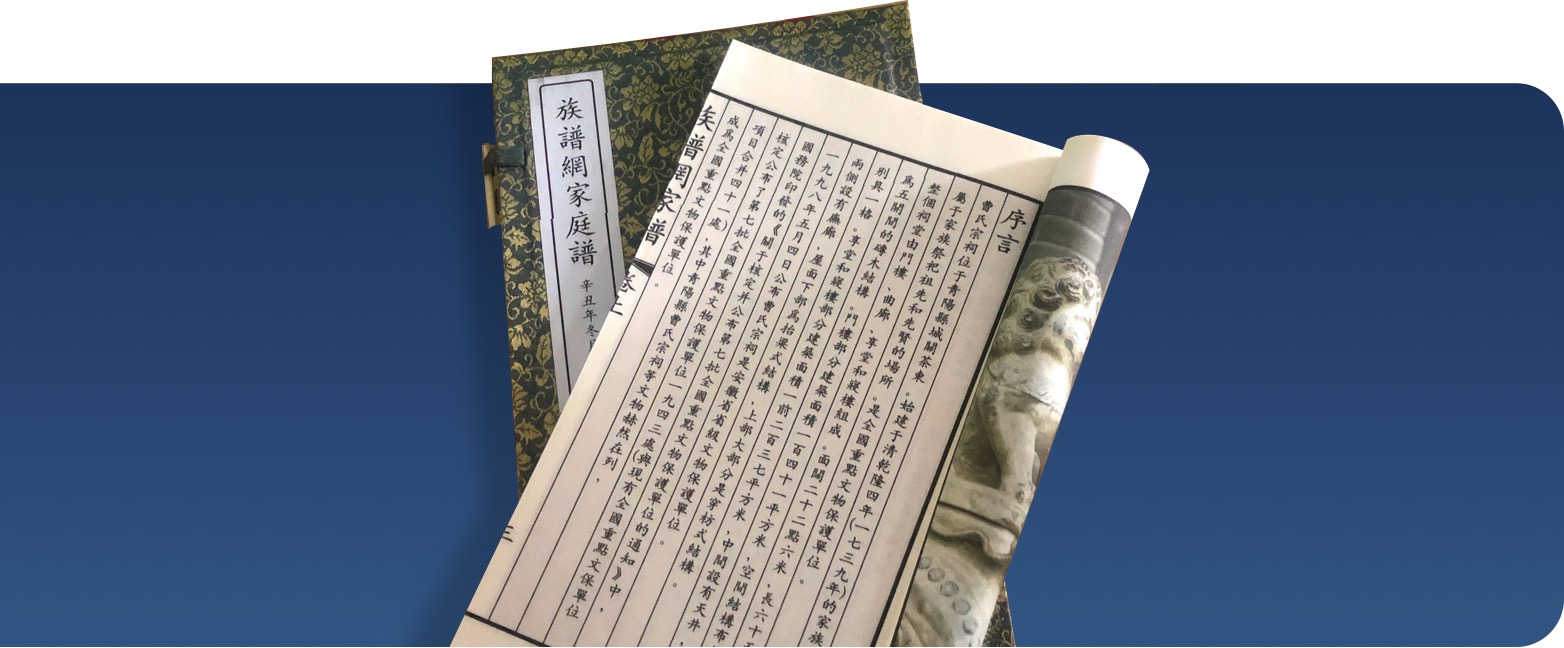 族譜網家庭譜
辛丑年冬
序言
曹氏宗祠位于青陽縣城關茶東。始建于清乾隆四年(一七三九年)的家族
屬于家族祭祀祖先和先賢的場所。是全國重點文物保護單位。
整個祠堂由門樓、曲廊、享堂和寢樓組成。面闊二十二點六米、長六十五
為五開間的磚木結構。門樓部分建築面積一百四十一平方米、空間結構布
別具一格。享堂和寢樓部分建築面積一前二百三七平方米、中間設有天井、
兩側設有廡廊、屋面下部為抬梁式結構、上部大部分是穿枋式結構。
一九九八年五月四日公布曹氏宗祠是安徽省省級文物保護單位。
國務院印發的《關于核定并公布第七批全國重點文物保護單位的通知》中,
核定公布了第七批全國重點文物保護單位一九四三處(與現有全國重點文保單位
項目合并四十一處)、其中青陽縣曹氏宗祠等文物赫然在列,
成為全國重點文物保護單位。
族譜網家譜
三